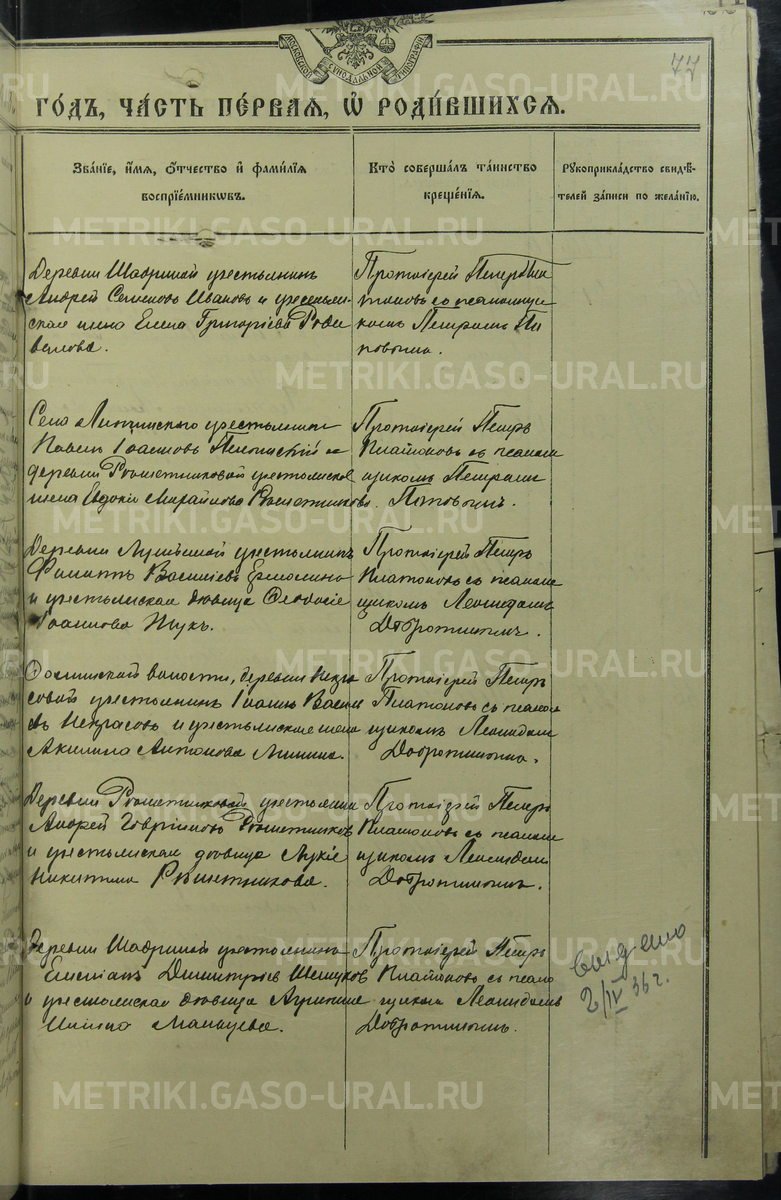 77
МОСКОВСКОЙ СѴНОДАЛЬНОЙ ТИПОГРАФІИ
ГО́ДЪ, ЧА́СТЬ ПЕ́РВАЯ, Ѡ҆ РОДИ́ВШИХСЯ.
ЗВА́НІЕ, И҆́МЯ, О҆́ТЧЕСТВО И҆ ФАМИ́ЛІЯ
ВОСПРІЕ́МНИКѠВЪ.
КТО̀ СОВЕРША́ЛЪ ТА́ИНСТВО
КРЕЩЕ́НІЯ.
РꙊКОПРИКЛА́ДСТВО СВИДѢ́-
ТЕЛЕЙ ЗА́ПИСИ ПО ЖЕЛА́НІЮ.
Деревни Шавриной крестьянинъ
Андрей Семеновъ Ивановъ и крестьян-
ская жена Елена Григоріева
Протоіерей Петръ Пла
тоновъ съ псаломщи
комъ Петромъ По
повымъ.
Села крестьянинъ
Павелъ Іоанновъ и
деревни Рѣшетниковой крестьянская
жена Евдокія Рѣшетникова.
Протоіерей Петръ
Платоновъ съ псалом
щикомъ Петромъ
Поповымъ.
Деревни крестьянинъ
Филиппъ Василіевъ
и крестьянская дѣвица Ѳеодосія
Іоаннова Жукъ.
Протоіерей Петръ
Платоновъ съ псалом
щикомъ Леонидомъ
Добротинымъ.
волости, деревни Некра
совой крестьянинъ Іоаннъ Василі
евъ Некрасовъ и крестьянская жена
Акилина Антонова Минина.
Протоіерей Петръ
Платоновъ съ псалом
щикомъ Леонидомъ
Добротинымъ.
Деревни Рѣшетниковой крестьянинъ
Андрей Гавріиловъ Рѣшетниковъ
и крестьянская дѣвица Лукія
Никитина Рѣшетникова.
Протоіерей Петръ
Платоновъ съ псалом
щикомъ Леонидомъ
Добротинымъ.
Деревни Шавриной крестьянинъ
Димитріевъ
и крестьянская дѣвица
Мальцева.
Протоіерей Петръ
Платоновъ съ псалом
щикомъ Леонидомъ
Добротинымъ.
выдано
2/IV 36 г.
METRIKI.GASO-URAL.RU